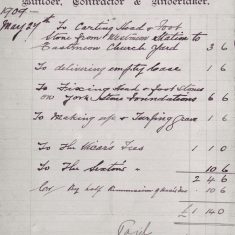 Builder, Contractor & Undertaker.
1909
May 27th To Carting Head & Foot
Stone from Westmeon Station to
Eastmeon Church Yard 3 6
To delivering empty case 1 6
To Fixing Head & foot Stones
on York Stone Foundations 6 6
To Making up & Turfing Grave 1 6
To the Vicar's Fees 1 1 0
To the Sextons " 10 6
2 4 6
By half Commission 10 6
£1 14 0
Paid